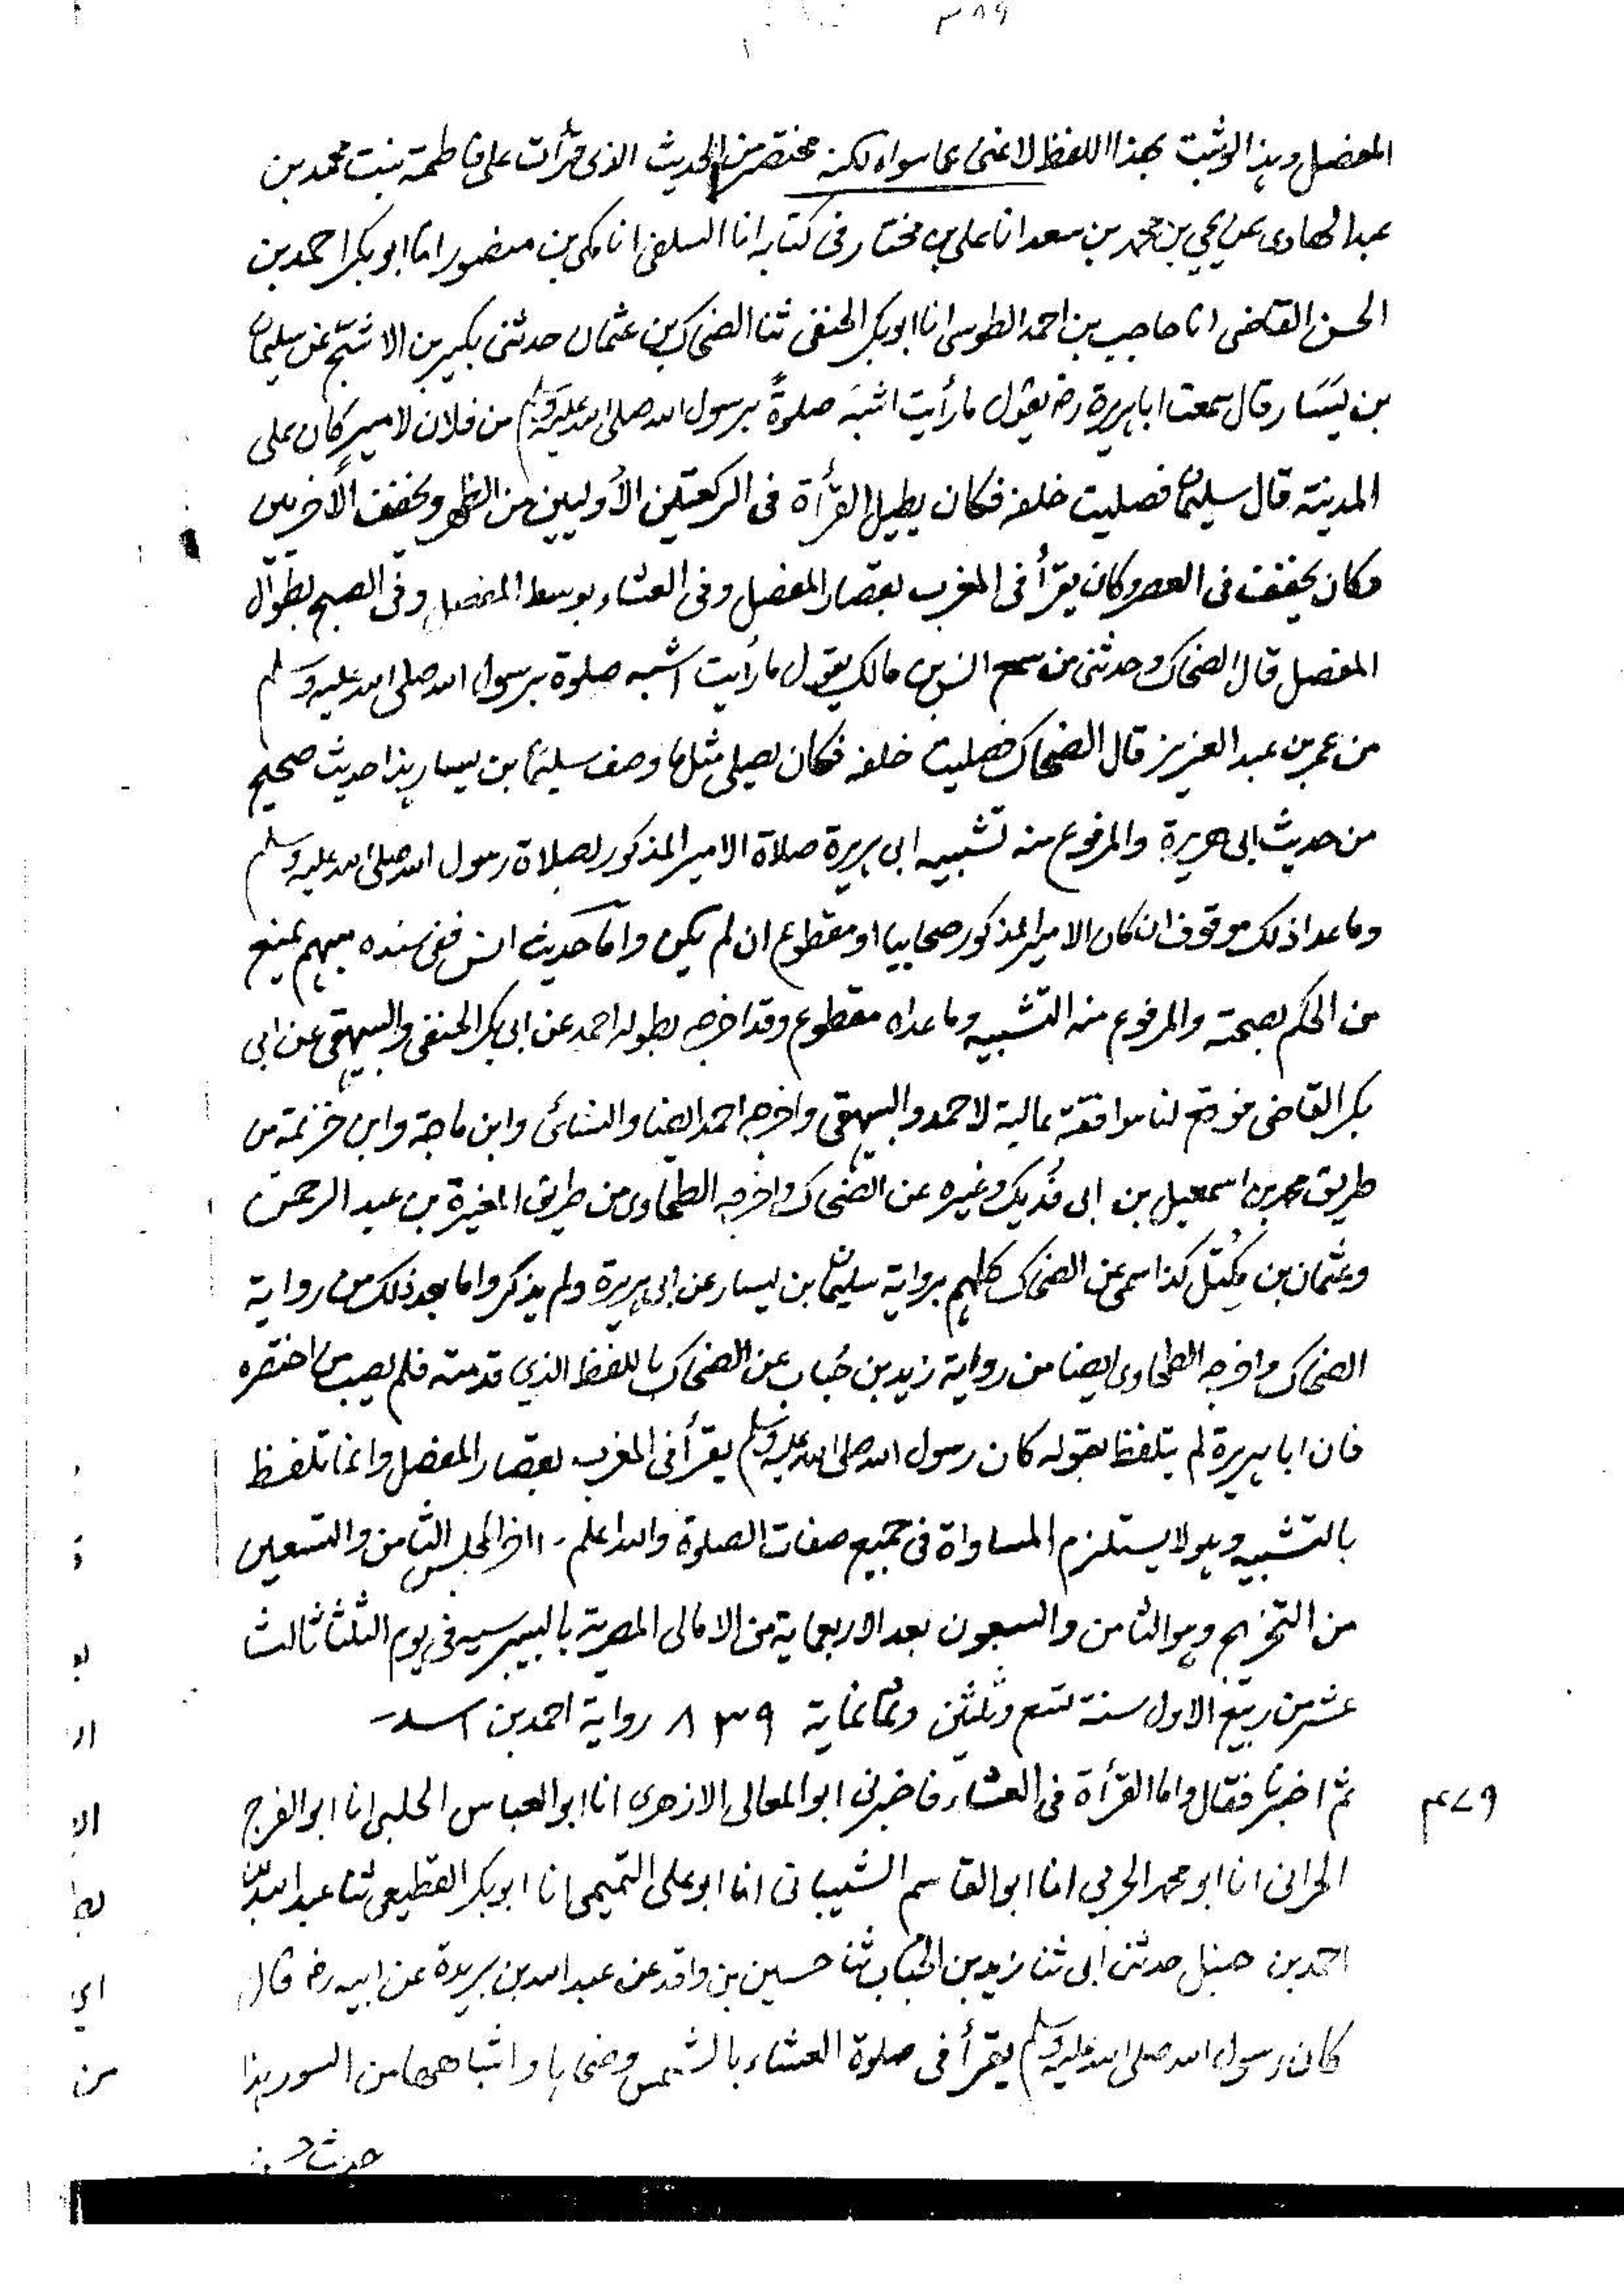 ٣٨٩
المفصل وهذا لو ثبت بهذا اللفظ لاغنى عما سواه لكنه مختصر من الحديث الذى قرأت على فاطمة بنت محمد بن
عبد الهادى عن يحيى بن محمد بن سعد انا على بن مختار فى كتابه انا السلفى انا مكى بن منصور انا ابو بكر احمد بن
الحسن القاضى انا حاجب بن احمد الطوسى انا ابو بكر الحنفى ثنا الضحاك بن عثمان حدثنى بكير بن الاشجّ عن سليمان
بن يَسَار قال سمعت ابا هريرة رض يقول ما رأيت اشبَه صلوةً برسول الله صلى الله عليه وسلم من فلان لاميرٍ كان على
المدينة قال سليمان فصليت خلفه فكان يطيل القرأة فى الركعتين الأوليين من الظهر ويخفف الأخريين
وكان يخفف فى العصر وكان يقرأ فى المغرب بقصار المفصل وفى العشاء بوسط المفصل وفى الصبح بطوال
المفصل قال الضحاك وحدثنى من سمع انس بن مالك يقول ما رأيت اشبه صلوة برسول الله صلى الله عليه وسلم
من عمر بن عبد العزيز قال الضحاك فصليت خلفه فكان يصلى مثل ما وصف سليمان بن يسار هذا حديث صحيح
من حديث ابى هريرة والمرفوع منه تشبيه ابى هريرة صلاة الامير المذكور بصلاة رسول الله صلى الله عليه وسلم
وما عدا ذلك موقوف ان كان الامير المذكور صحابيا او مقطوع ان لم يكن واما حديث انس ففى سنده مبهم يمنع
من الحكم بصحته والمرفوع منه التشبيه وما عداه مقطوع وقد اخرجه بطوله احمد عن ابى بكر الحنفى والبيهقى عن ابى
بكر القاضى فوقع لنا موافقة عالية لاحمد والبيهقى واخرجه احمد ايضا والنسائى وابن ماجة وابن خزيمة من
طريق محمد بن اسمعيل بن ابى فُدَيك وغيره عن الضحاك واخرجه الطحاوى من طريق المغيرة بن عبد الرحمن
وعثمان بن مِكْتَل كذا سمى عن الضحاك كلهم برواية سليمان بن يسار عن ابى هريرة ولم يذكروا ما بعد ذلك من رواية
الضحاك واخرجه الطحاوى ايضا من رواية زيد بن حُبَاب عن الضحاك باللفظ الذي قدمته فلم يصب من اختصره
فان ابا هريرة لم يتلفظ بقوله كان رسول الله صلى الله عليه وسلم يقرأ فى المغرب بقصار المفصل وانما تلفظ
بالتشبيه وهو لا يستلزم المساواة فى جميع صفات الصلوة والله اعلم - اخر المجلس الثامن والتسعين
من التخريج وهو الثامن والسبعون بعد الاربعماية من الامالى المصرية بالبيبرسيه فى يوم الثلثا ثالث
عشر من ربيع الاول سنة تسع وثلثين وثمانماية ٨٣٩ رواية احمد بن اسد
ثم اخبرنا فقال واما القرأة فى العشاء فاخبرنى ابو المعالى الازهرى انا ابو العباس الحلبى انا ابو الفرج
٤٧٩
الحرانى انا ابو محمد الحربى انا ابو القاسم الشيبانى انا ابو على التميمى انا ابو بكر القطيعى ثنا عبد الله بن
احمد بن حنبل حدثنى ابى ثنا زيد بن الحُبَاب ثنا حسين بن واقد عن عبد الله بن بريدة عن ابيه رض قال
كان رسول الله صلى الله عليه وسلم يقرأ فى صلوة العشاء بالشمس وضحاها واشباهها من السور هذا
حديث